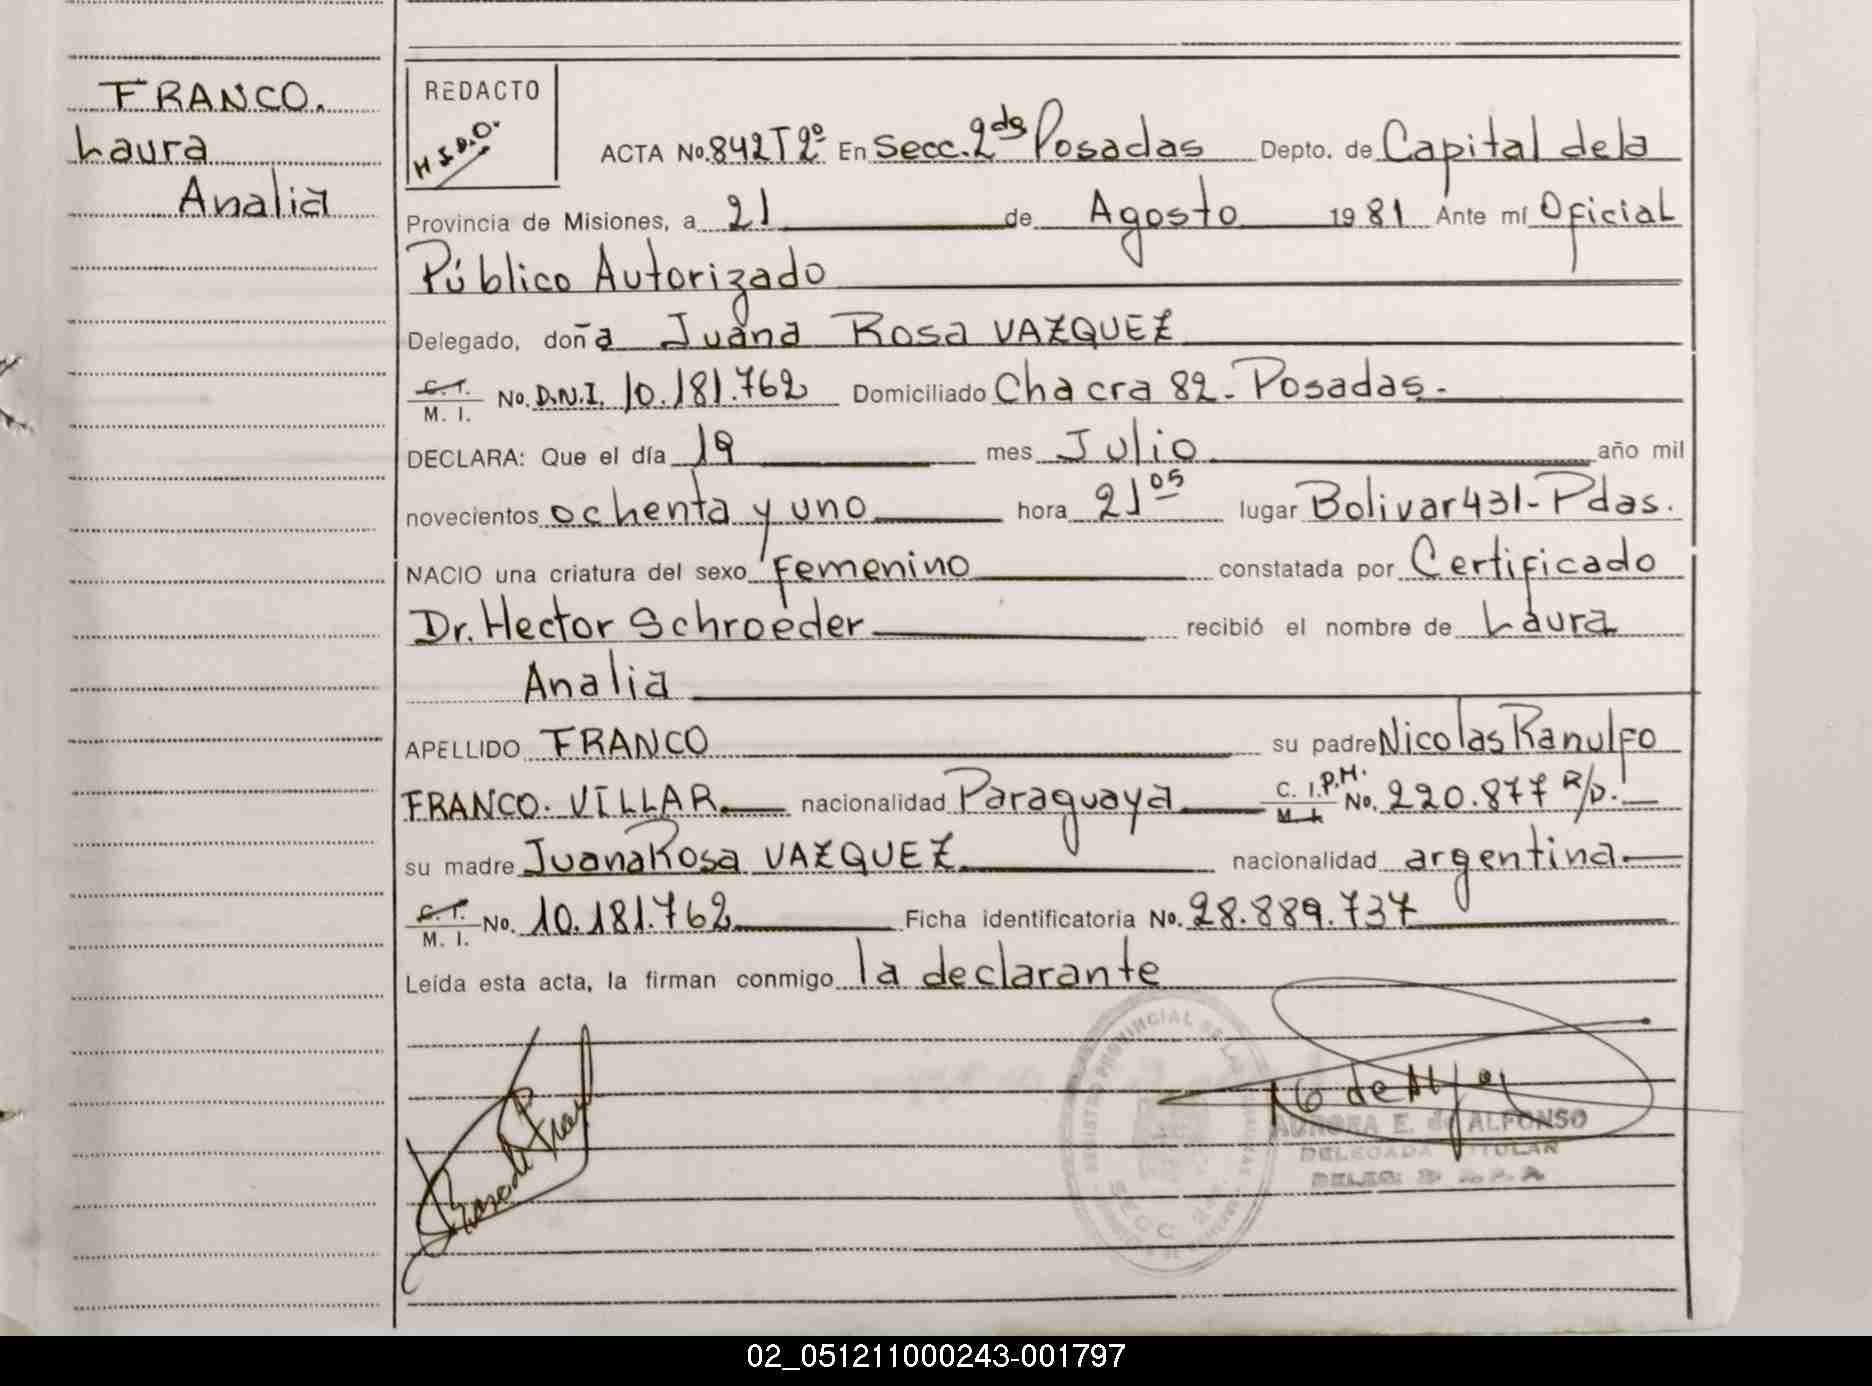 FRANCO.
Laura
Analia
REDACTO
H.S.D.O.
ACTA No. 842 T 2º En Secc. 2da Posadas Depto. de Capital de la
Provincia de Misiones, a 21 de Agosto 1981 Ante mí Oficial
Público Autorizado
Delegado, doña Juana Rosa VAZQUEZ
C. I. M. I. No. D.N.I. 10.181.762 Domiciliado Chacra 82 - Posadas.
DECLARA: Que el día 19 mes Julio año mil
novecientos ochenta y uno hora 21 05 lugar Bolivar 431 - Pdas.
NACIO una criatura del sexo Femenino constatada por Certificado
Dr. Hector Schroeder recibió el nombre de Laura
Analia
APELLIDO FRANCO su padre Nicolas Ranulfo
FRANCO. VILLAR nacionalidad Paraguaya C. I. P.M. M. I. No. 220.877 R/D.
su madre Juana Rosa VAZQUEZ nacionalidad argentina
C. I. M. I. No. 10.181.762 Ficha identificatoria No. 28.889.737
Leída esta acta, la firman conmigo la declarante
REGISTRO PROVINCIAL DE LAS
SECC. 2da.
AURORA E. de ALFONSO
DELEGADA TITULAR
02_051211000243-001797